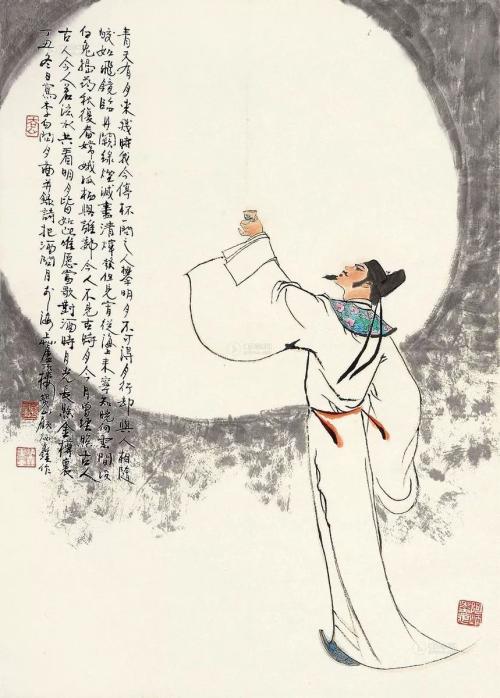 青天有月來幾時我今停杯一問之人攀明月不可得月行却與人相隨
皎如飛鏡臨丹闕綠煙滅盡清輝發但見宵從海上來寧知曉向雲間沒
白兔搗药秋復春嫦娥孤栖與誰鄰今人不見古時月今月曾經照古人
古人今人若流水共看明月皆如此唯愿當歌對酒時月光長照金樽裏
丁丑冬日寫李白問月圖并錄詩把酒問月於海上樓顧炳鑫作